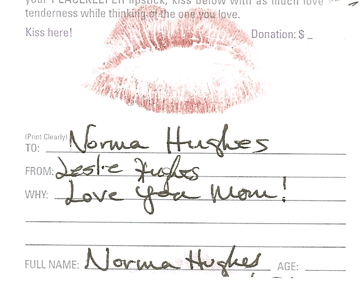 your PLACEKEEPER lipstick, kiss below with as much love
tenderness while thinking of the one you love.
Kiss here! Donation: $
(Print Clearly)
TO: Norma Hughes
FROM: Leslie Hughes
WHY: Love you Mom!
FULL NAME: Norma Hughes AGE: